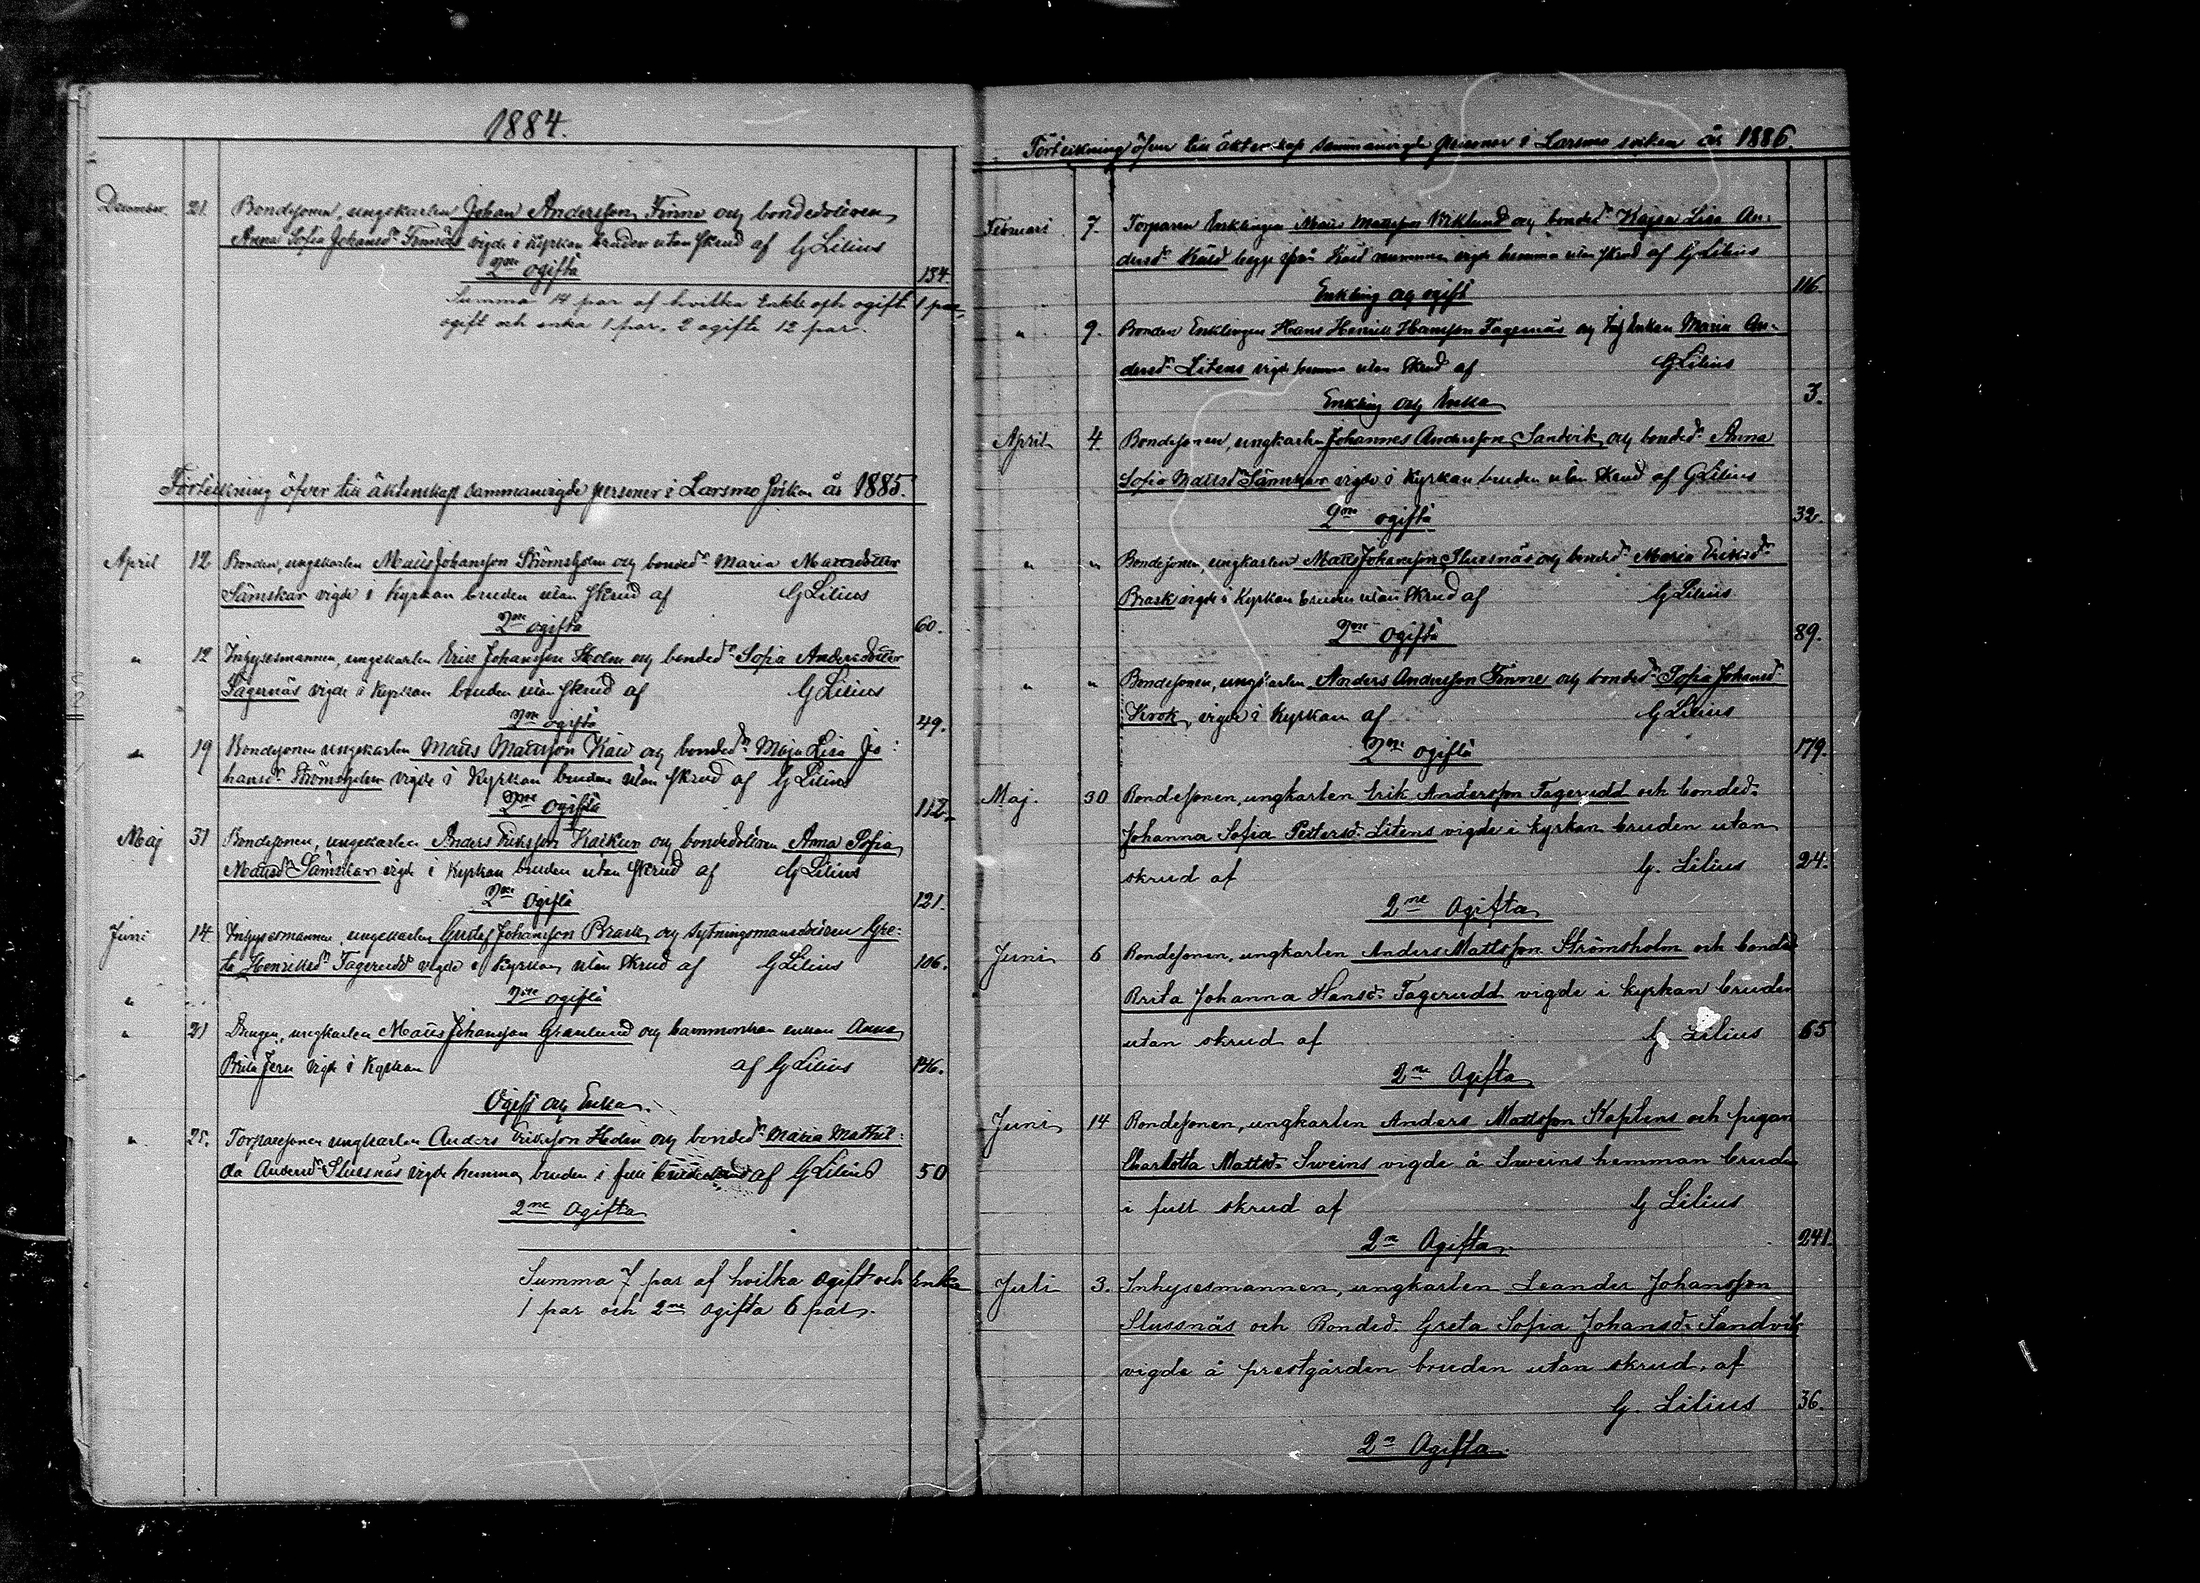 1884.
December 21. Bondesonen, ungkarlen Johan Andersson Finne och bondedottren
Anna Sofia Johansdr Finnäs vigde i Kyrkan bruden utan skrud af G Lilius
2ne ogifta
134.
Summa 14 par af hvilka Enkl och ogift 1 par,
ogift och enka 1 par, 2 ogifte 12 par.
Förteckning öfver till äktenskap sammanvigde personer i Larsmo socken år 1885.
April 12 Bonden, ungkarlen Matts Johansson Strömsholm och bonded. Maria Mattsdotter
Sämskar vigde i Kyrkan bruden utan skrud af G Lilius
2ne ogifta
60.
" 12 Inhysesmannen, ungkarlen Erik Johansson Holm och bonded. Sofia Andersdotter
Fagernäs vigde i Kyrkan bruden utan skrud af G Lilius
2ne ogifta
49.
" 19 Bondesonen ungkarlen Matts Mattsson Käld och bonded. Maja Lisa Jo:
hansdr Strömsholm vigde i Kyrkan bruden utan skrud af G Lilius
2ne ogifta
112.
Maj 31 Bondesonen, ungkarlen Anders Eriksson Kackur och bondedottren Anna Sofia
Mattsdr Sämskar vigde i Kyrkan bruden utan skrud af G Lilius
2ne ogifta
121.
Juni 14. Inhysesmannen, ungkarlen Gustaf Johansson Brask och sytningsmansdottren Gre:
ta Henriksdr Fagerudd vigde i Kyrkan utan skrud af G Lilius
106.
" 2ne ogifta
" 21 Drengen, ungkarlen Matts Johansson Granlund och enkan Anna
Brita Jern vigde i Kyrkan af G Lilius
136.
Ogift och Enka.
" 25. Torparesonen ungkarlen Anders Eriksson Holm och bonded. Maria Mathil:
da Andersdr Slussnäs vigde hemma, bruden i full brudskrud af G Lilius
50
2ne Ogifta
Summa 7 par af hvilka ogift och Enka
1 par och 2ne ogifta 6 par.
Förteckning öfver till äktenskap sammanvigde personer i Larsmo socken år 1886.
Februari 7. Torparen Enklingen Matts Mattsson Wiklund och bonded. Kajsa Lisa An:
dersdr Käld begge från Käld hemman vigde hemma utan skrud af G Lilius
Enkling och ogift
116.
" 9. Bonden Enklingen Hans Henrik Hansson Fagernäs och Enkan Maria An:
dersdr Litens vigde hemma utan skrud af G Lilius
Enkling och Enka
3.
April 4. Bondesonen, ungkarlen Johannes Andersson Sandvik och bonded. Anna
Sofia Mattsdr Sämskar vigde i Kyrkan bruden utan skrud af G Lilius
2ne ogifta
32.
" " Bondesonen, ungkarlen Matts Johansson Slussnäs och bonded. Maria Eriksdr
Brask vigde i Kyrkan bruden utan skrud af G Lilius
2ne ogifta
89.
" " Bondesonen, ungkarlen Anders Andersson Finne och bonded. Sofia Johansdr
Krok, vigde i Kyrkan af G Lilius
2ne ogifta
179.
Maj. 30 Bondesonen, ungkarlen Erik Andersson Fagerudd och bonded.
Johanna Sofia Pettersd. Litens vigde i kyrkan bruden utan
skrud af G. Lilius
24.
2ne Ogifta
Juni 6 Bondesonen, ungkarlen Anders Mattsson Strömsholm och bonded
Brita Johanna Hansd. Fagerudd vigde i kyrkan bruden
utan skrud af G Lilius
65
2ne Ogifta
Juni 14 Bondesonen, ungkarlen Anders Mattsson Kaptens och pigan
Charlotta Mattsd. Sweins vigde å Sweins hemman bruden
i full skrud af G Lilius
2ne Ogifta.
241.
Juli 3. Inhysesmannen, ungkarlen Leander Johansson
Slussnäs och Bonded. Greta Sofia Johansd. Sandvik
vigde å prestgården bruden utan skrud. af
G. Lilius
36.
2ne Ogifta.